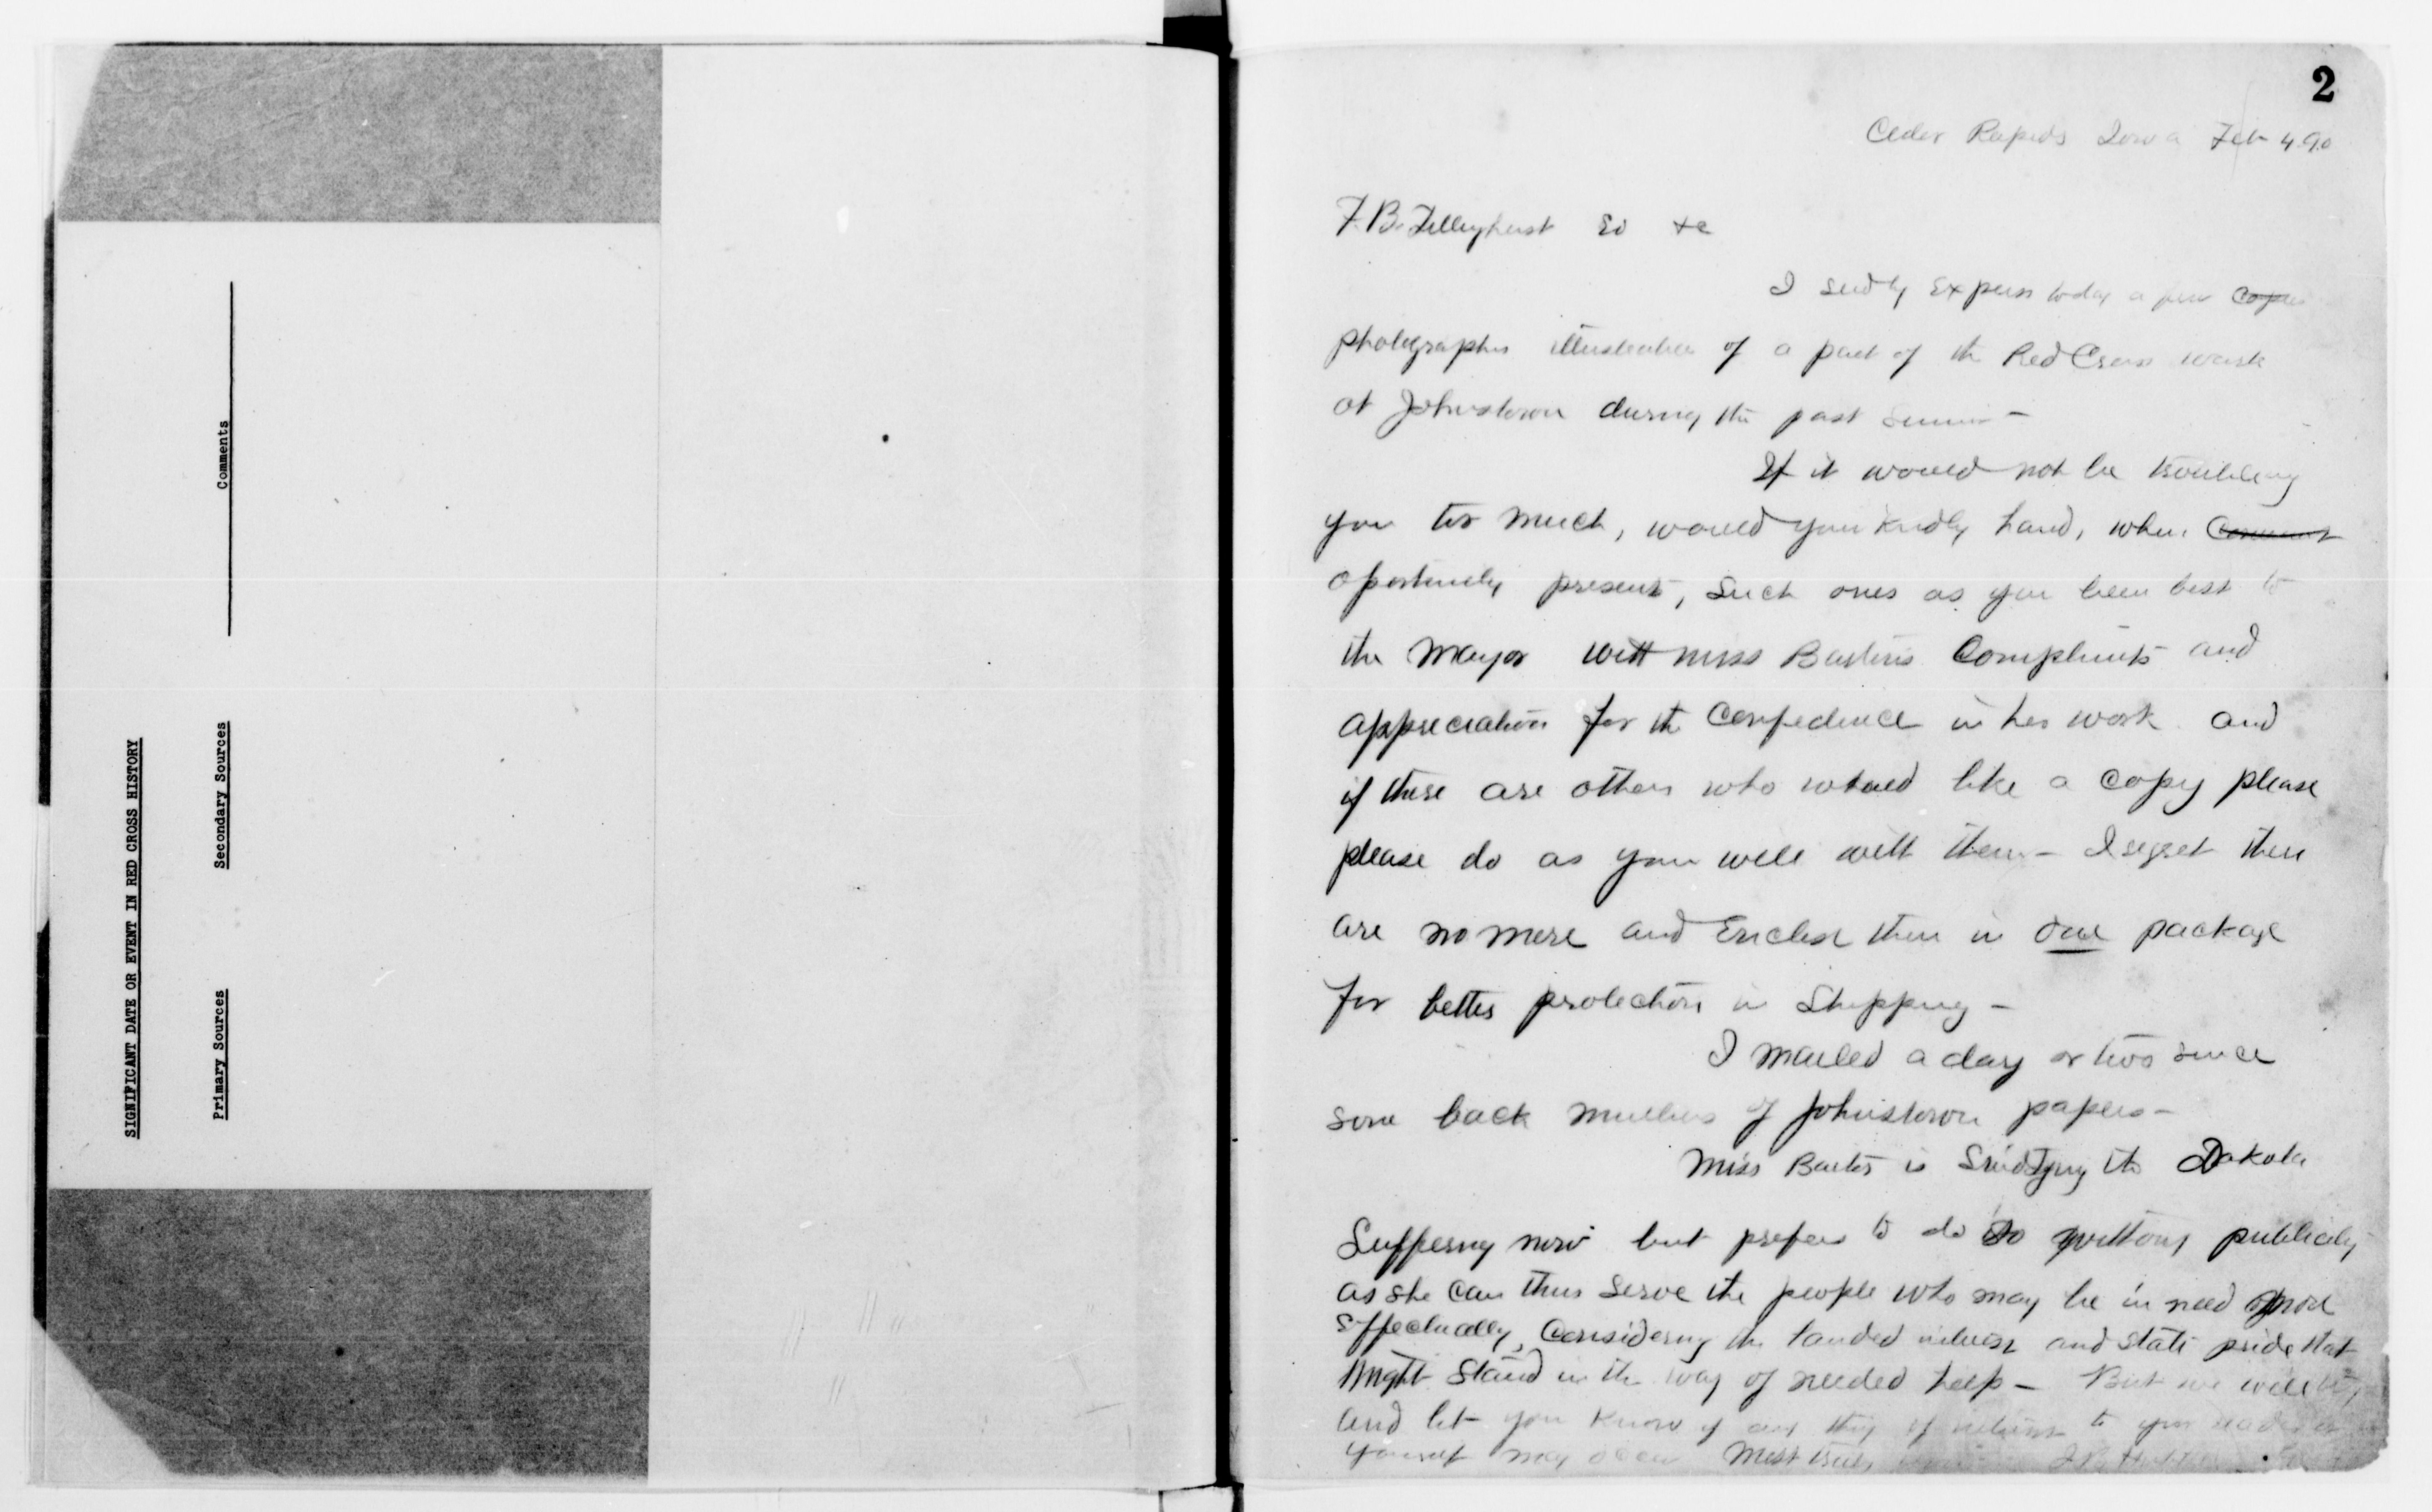 SIGNIFICANT DATE OR EVENT IN RED CROSS HISTORY
Primary Sources
Secondary Sources
Comments
2
Ceder Rapids Iowa Feb 4. 90
F. B. Ed &c
I send by Express today a few Copies
photographs illustrative of a part of the Red Cross work
at Johnstown during the past summer –
If it would not be troubling
you too much, would you kindly hand, when
oportunity presents, such ones as you best to
the Mayor with miss Barton's Compliments and
appreciation for the Confidence in her work and
if there are others who would like a copy please
please do as you will with them – I regret there
are no more and Enclose them in one package
for better protection in Shipping –
I mailed a day or two since
some back numbers of Johnstown papers –
Miss Barton is Studying the Dakota
Suffering now but prefers to do so without publicity
as she can thus serve the people who may be in need more
Effectually, Considering the landed interest and state pride that
might stand in the way of needed help – But we will
and let you know if any thing of interest to your readers or
yourself may occur Most truly